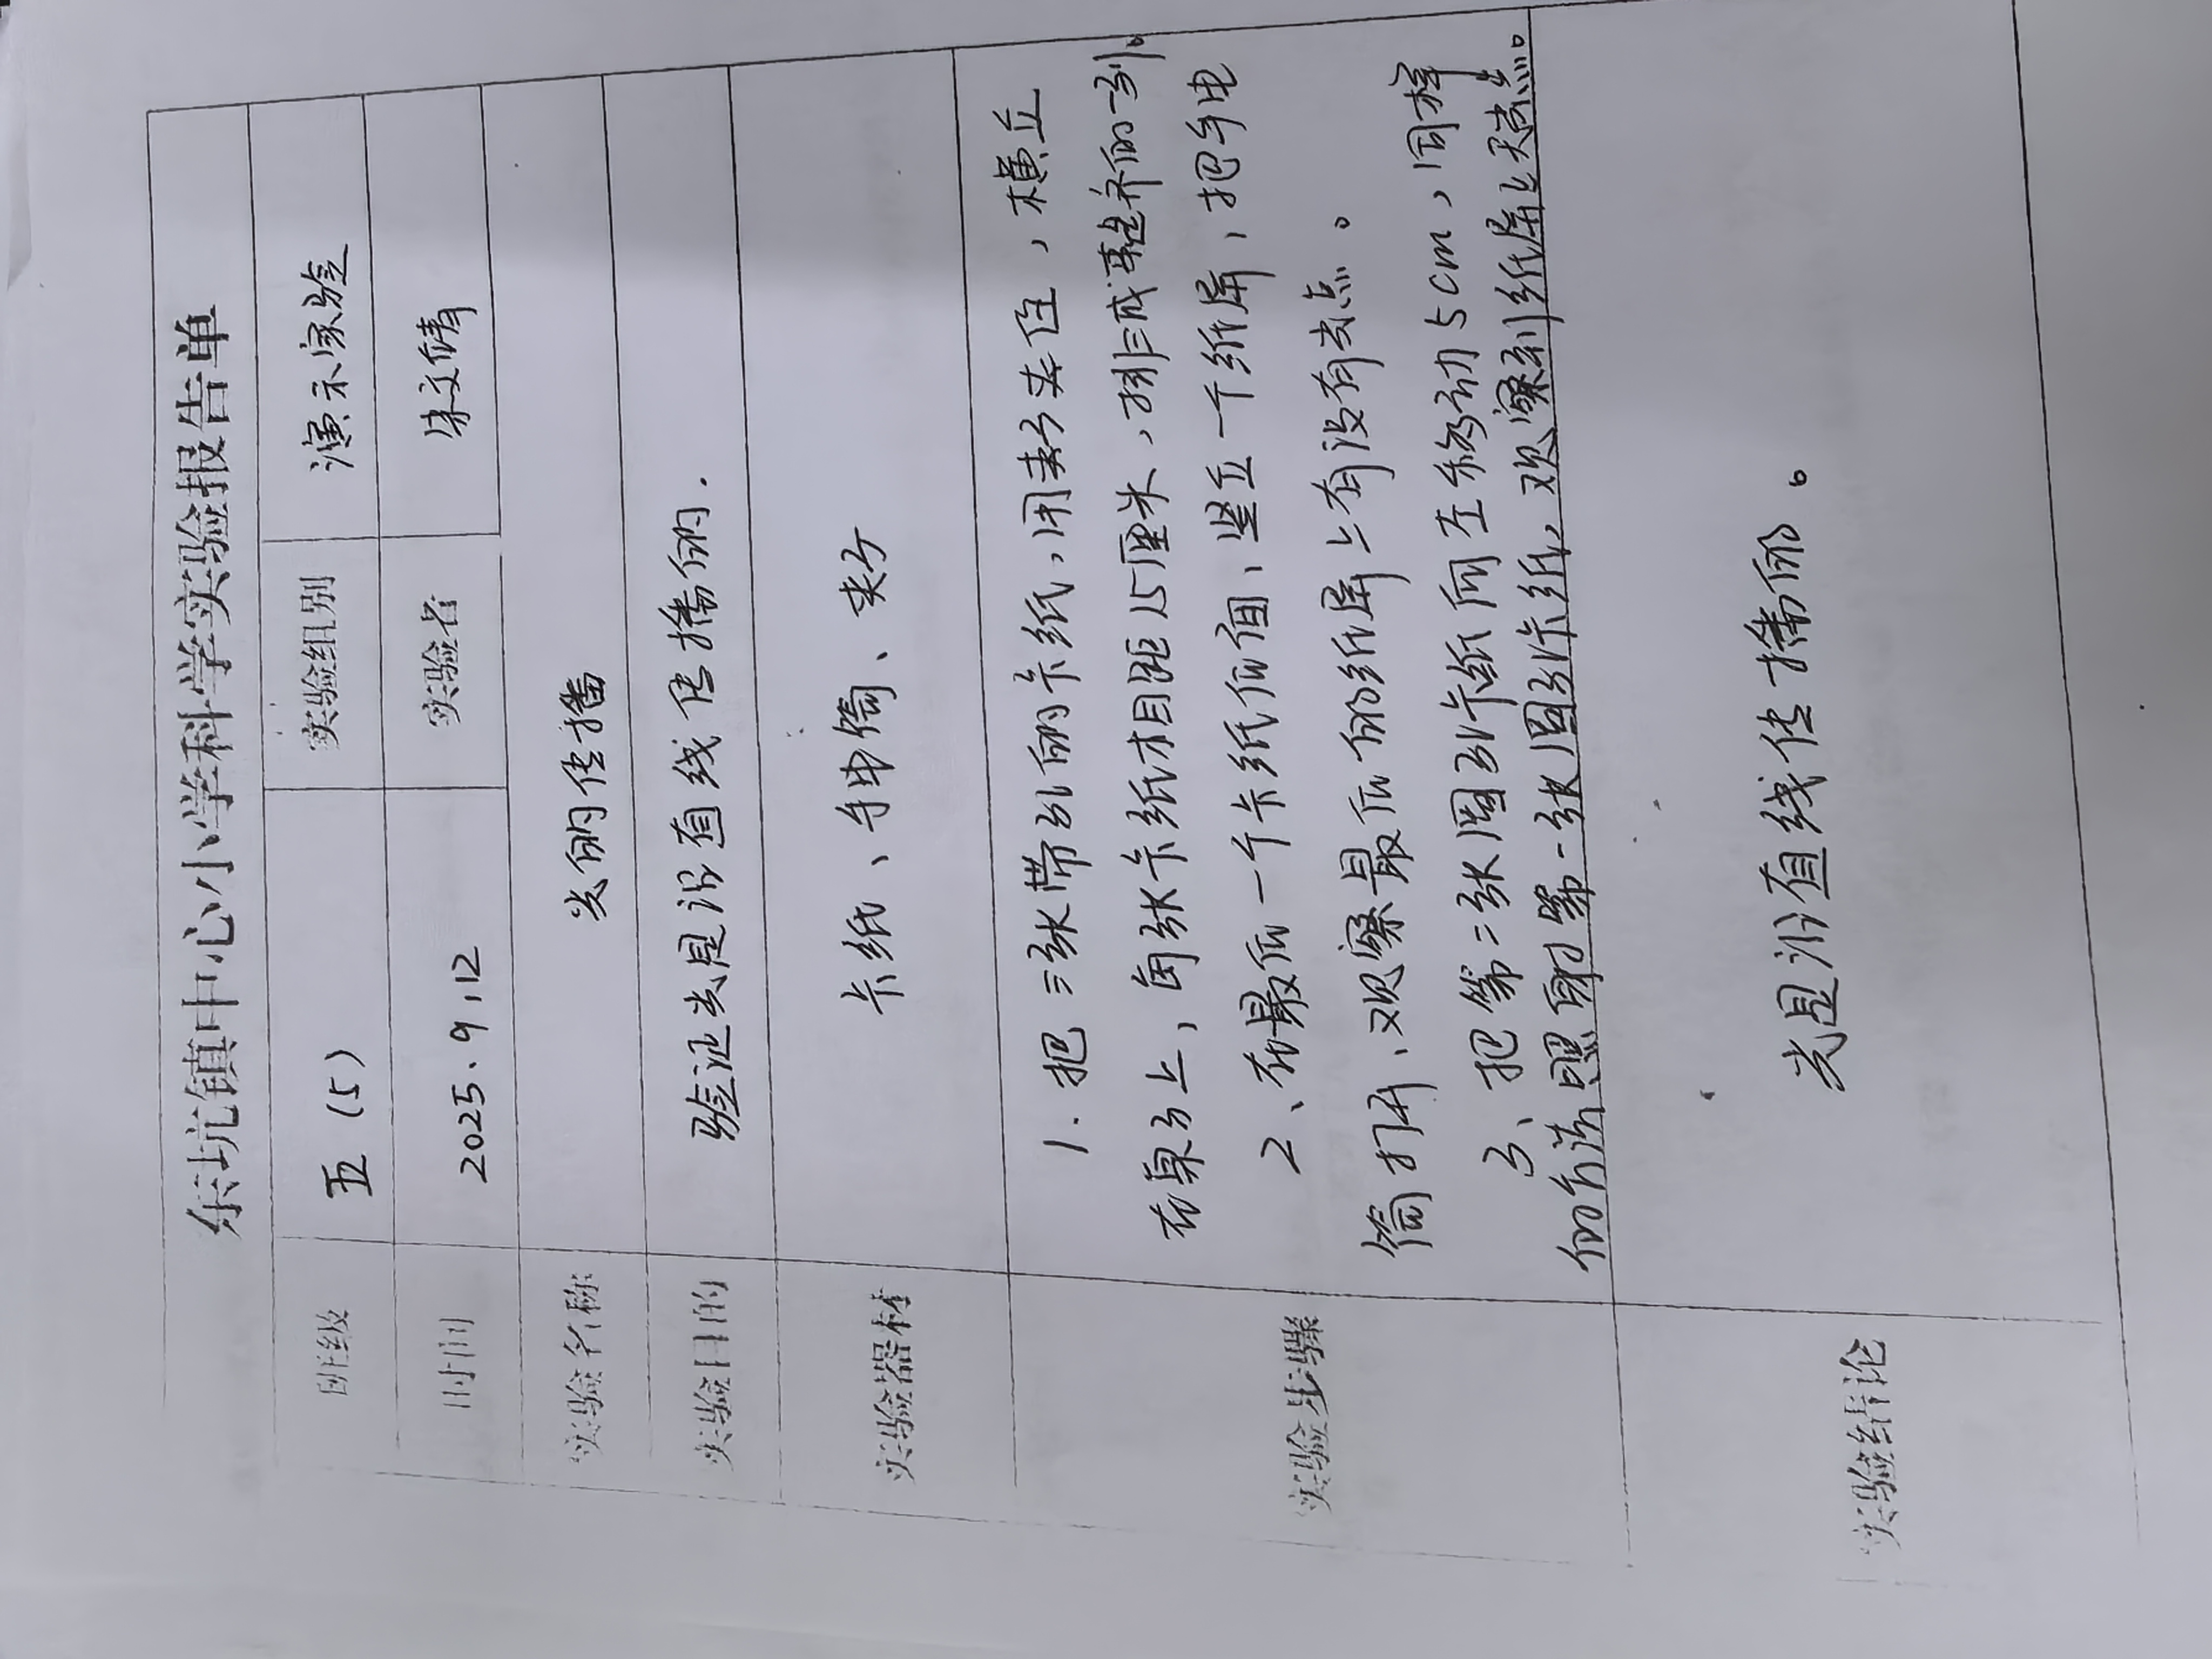 东坑镇中心小学科学实验报告单
班级 五（5） 实验组别 演示实验
时间 2025.9.12 实验者 朱文倩
实验名称 光的传播
实验目的 验证光是沿直线传播的.
实验器材 卡纸、手电筒、夹子
实验步骤
1.把三张带孔的卡纸、用夹子夹住，横立
在桌子上，每张卡纸相距15厘米、排成整齐的一列。
2、在最后一个卡纸后面、竖立一个纸屏，把手电
筒打开、观察最后的纸屏上有没有光点。
3、把第二张圆孔卡纸向左移动5cm，同样
的方法照射第一张圆孔卡纸、观察到纸屏上无光点。
实验结论 光是沿直线传播的。